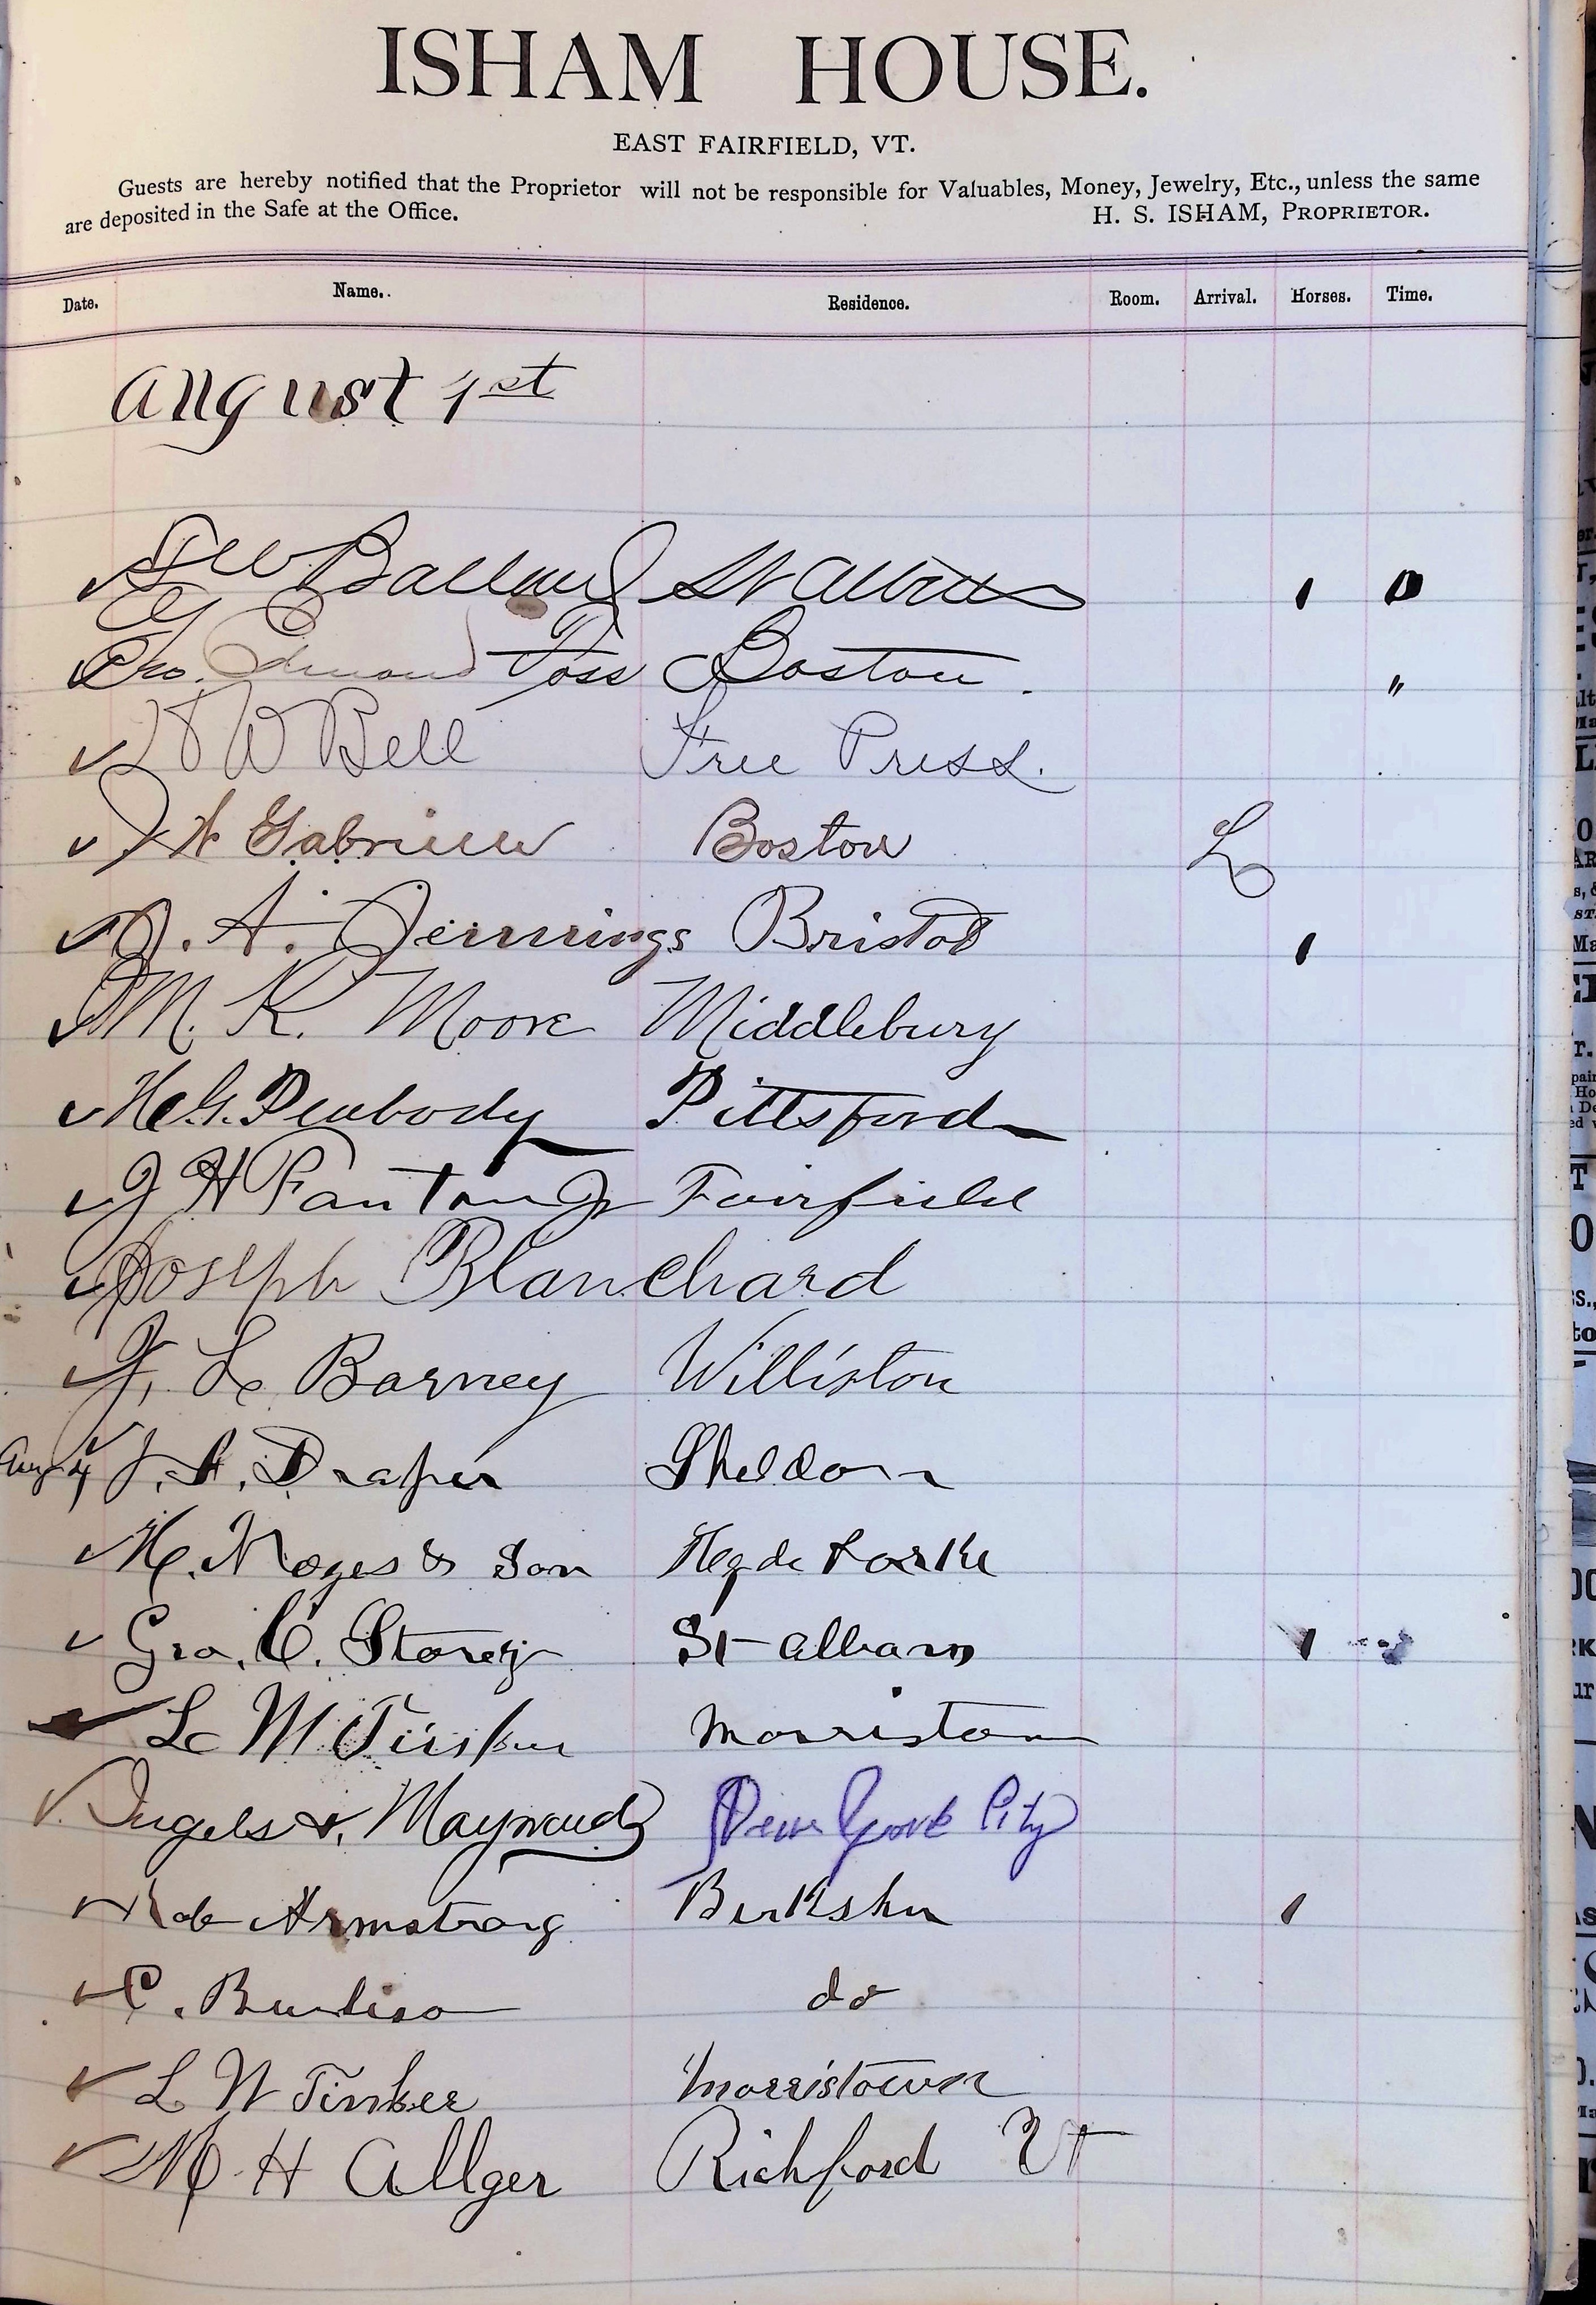 ISHAM HOUSE.
EAST FAIRFIELD, VT.
Guests are hereby notified that the Proprietor will not be responsible for Valuables, Money, Jewelry, Etc., unless the same
are deposited in the Safe at the Office. H. S. ISHAM, PROPRIETOR.
Date. Name. Residence. Room. Arrival. Horses. Time.
August 1st
Ballard St Albans 1
Edmond Foss Boston. "
W Bell Free Press.
Boston L
A. Jennings Bristol 1
M. K. Moore Middlebury
Peabody Pittsford
J H Fanton Jr Fairfield
Joseph Blanchard
J. L. Barney Williston
Aug 4 J. A. Draper Sheldon
H. Noyes & Son Hyde Parke
Geo. C. Storey St Albans 1
L M Tinker Morristown
Ingels & Maynard New York City
Armstrong Berkshire 1
C. do
L W Tinker Morristown
M H Allger Richford Vt